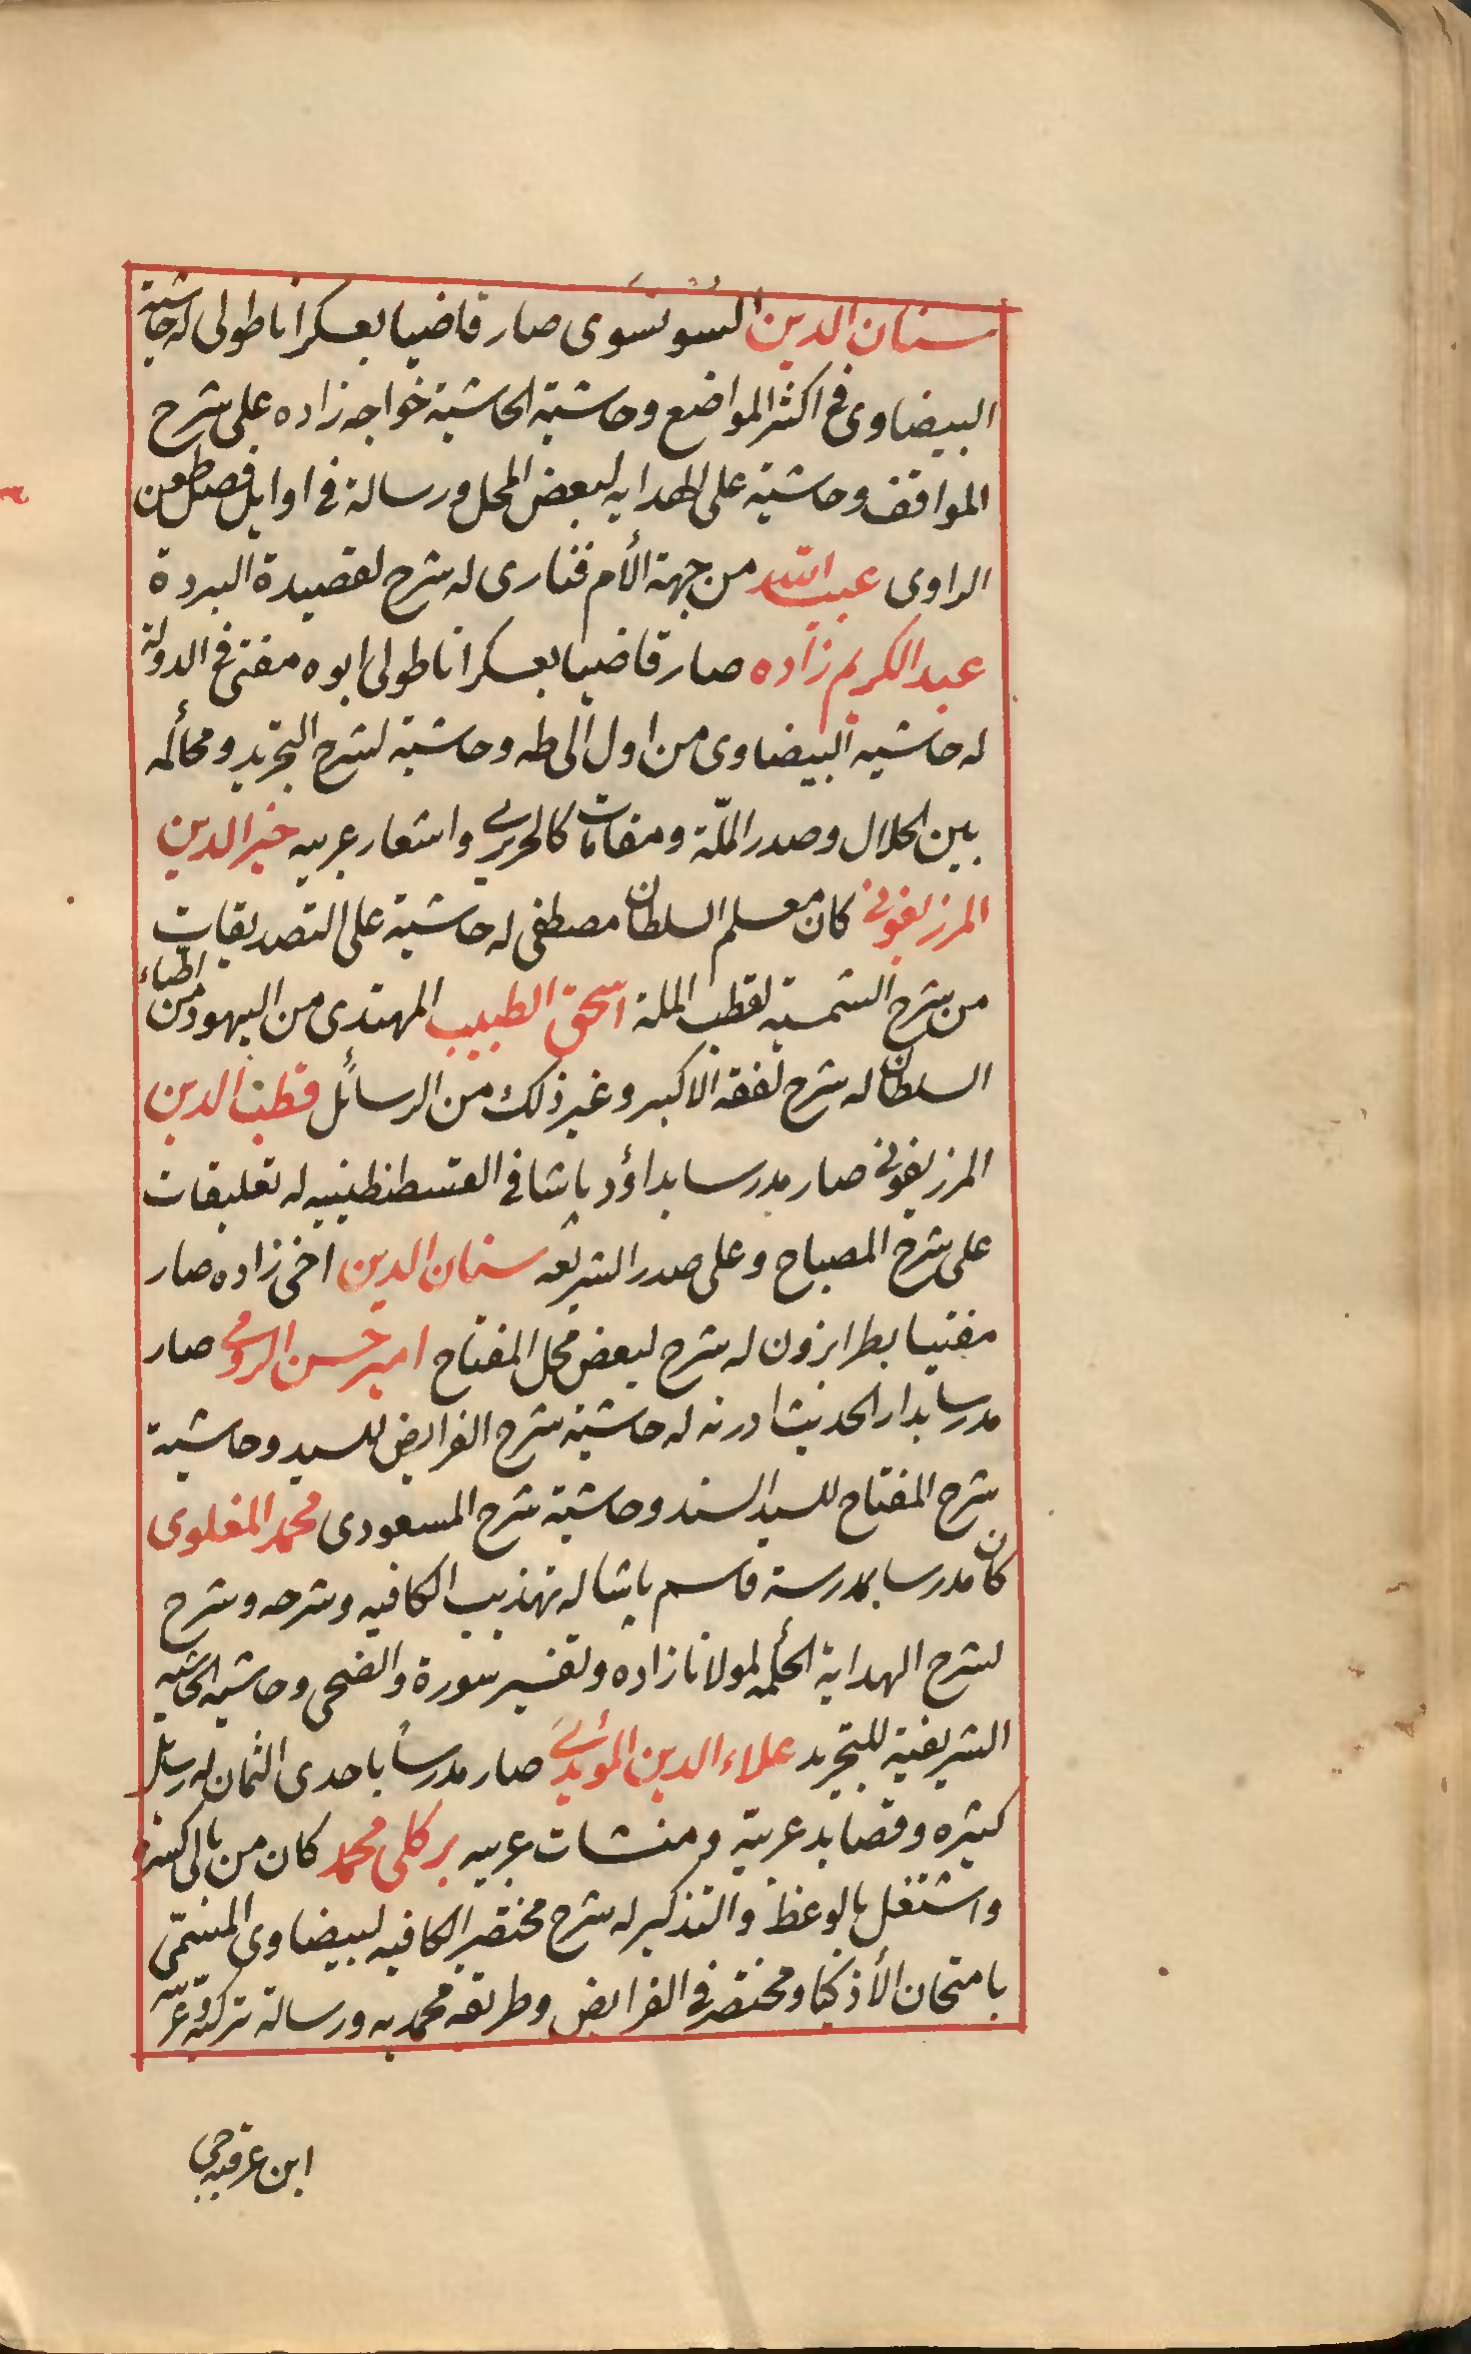 سنان الدين السونسوى صار قاضيا بعسكر اناطولى له حاشية
البيضاوى فى اكثر المواضع وحاشية الحاشية خواجه زاده على شرح
المواقف وحاشية على الهدايه لبعض المحل ورسالة فى اوايل فصل طعن
الراوى عبد الله من جهة الأم فنارى له شرح لقصيدة البردة
عبد الكريم زاده صار قاضيا بعسكر اناطولى ابوه مفتى فى الدولة
له حاشيه البيضاوى من اول الى طه وحاشية لشرح التجريد ومحاكمه
بين الجلال وصدر الملّة ومقامات كالحريرى واشعار عربيه خير الدين
المرزيفونى كان معلم السلطان مصطفى له حاشية على التصديقات
من شرح الشمسيه لقطب الملة اسحق الطبيب المهتدى من اليهود من اطباء
السلطان له شرح لفقه الاكبر وغير ذلك من الرسائل قطب الدين
المرزيفونى صار مدرسا بداؤد باشا فى القسطنطينيه له تعليقات
على شرح المصباح وعلى صدر الشريعه سنان الدين اخى زاده صار
مفتيا بطرابزون له شرح لبعض محل المفتاح امير حسن الرومى صار
مدرسا بدار الحديث ادرنه له حاشية شرح الفرايض للسيد وحاشية
شرح المفتاح للسيد السند وحاشية شرح المسعودى محمد المغلوى
كان مدرسا بمدرسة قاسم باشا له تهذيب الكافيه وشرحه وشرح
لشرح الهداية الحكمه لمولانا زاده ولتفسير سورة والضحى وحاشيه الحاشيه
الشريفية للتجريد علاء الدين المؤيدى صار مدرسا باحدى الثمان له رسائل
كثيره وقصايد عربية ومنشات عربيه بركلى محمد كان من بالى كسره
واشتغل بالوعظ والتذكير له شرح مختصر الكافيه لبيضاوى المسمّى
بامتحان الأذكيا ومختصر فى الفرايض وطريقه محمديه ورسالة تركيه وعربيه
ابن عرقيه جى